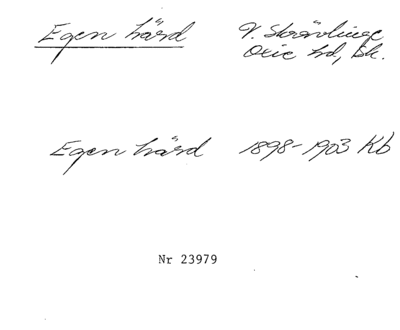 Egen härd V. Skrävlinge
Oxie hd, Sk.
Egen härd 1898-1903 Kb
Nr 23979